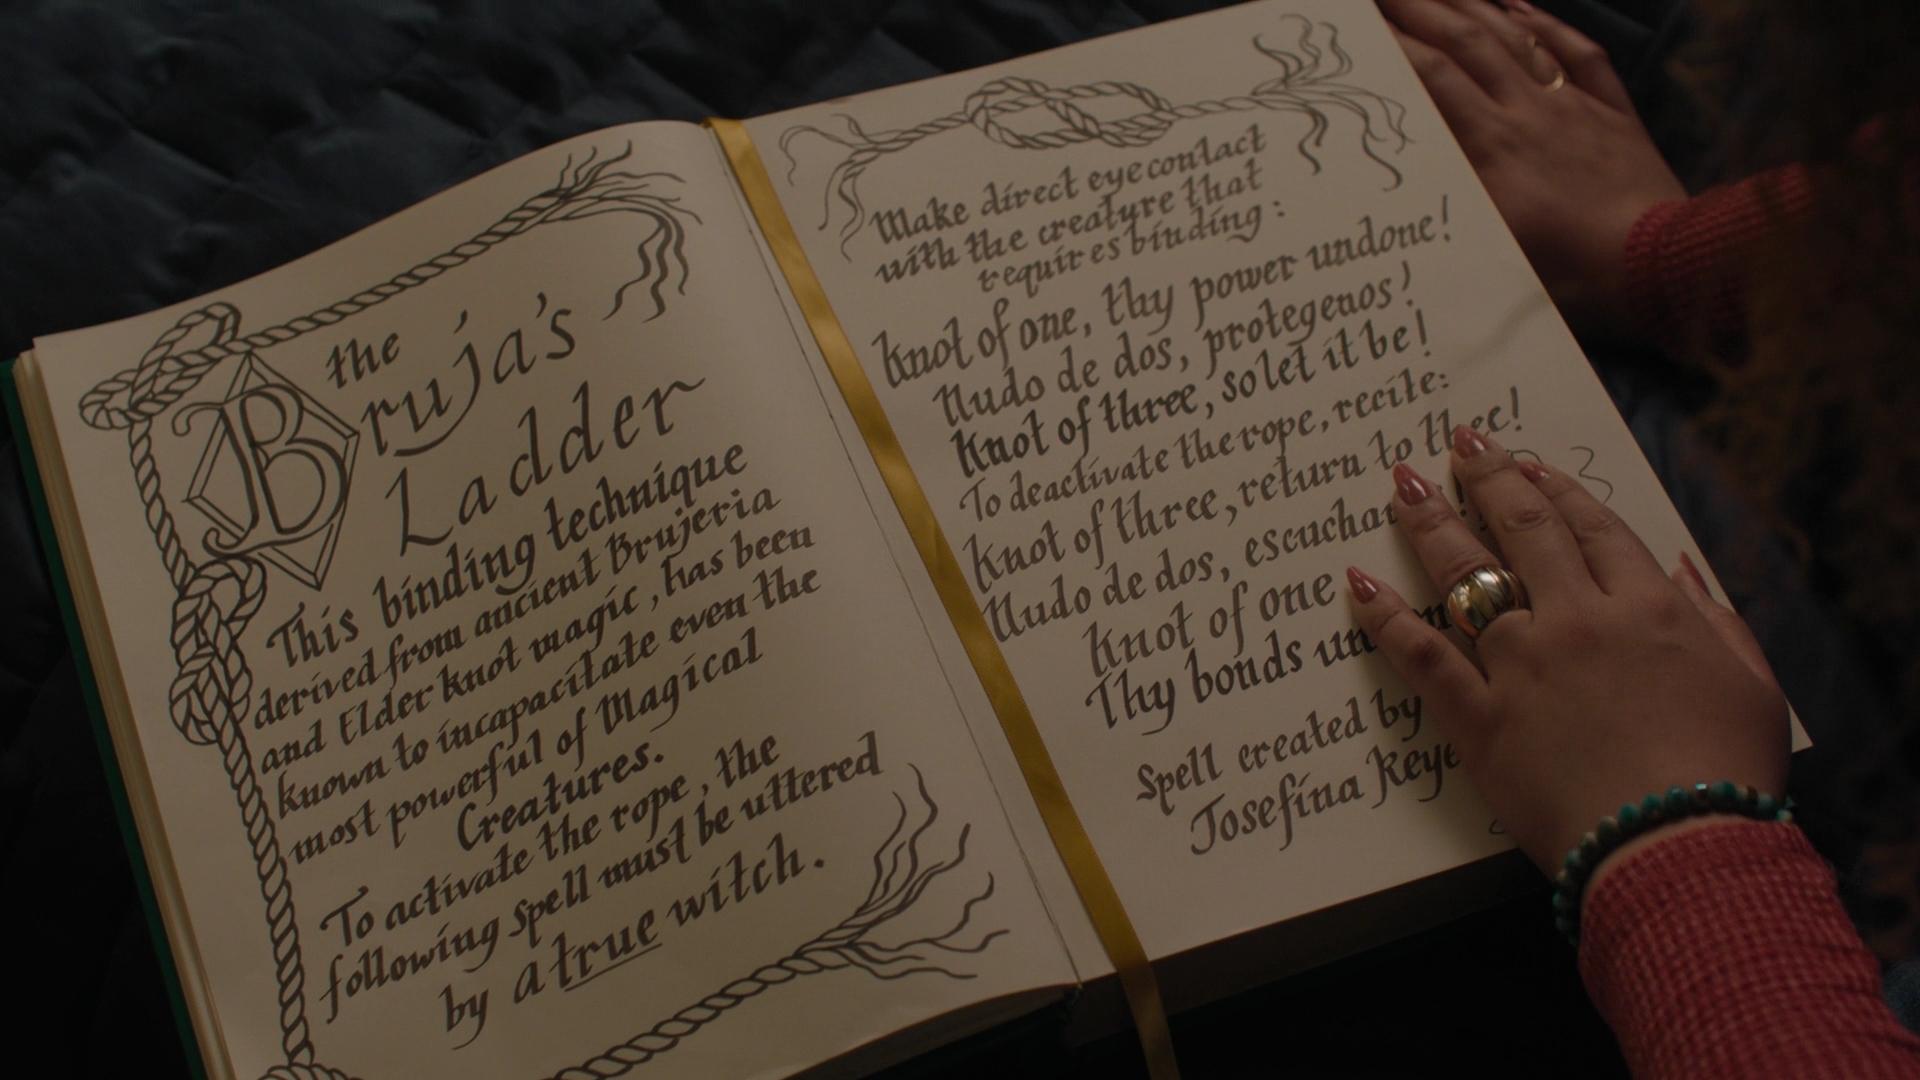 the
Bruja's
Ladder
This binding technique
derived from ancient Brujeria
and Elder knot magic, has been
known to incapacitate even the
most powerful of Magical
Creatures.
To activate the rope, the
following spell must be uttered
by a true witch.
Make direct eye contact
with the creature that
requires binding:
Knot of one, thy power undone!
Nudo de dos, protegenos!
Knot of three, so let it be!
To deactivate the rope, recite:
Knot of three, return to thee!
Nudo de dos,
Knot of one
Thy bonds
Spell created by
Josefina